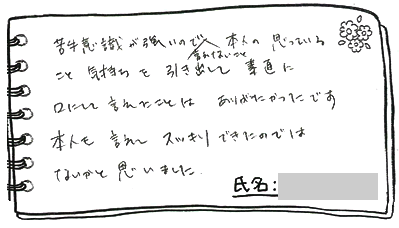 苦手意識が強いので 言わないこと 本人の思っている
こと 気持ちを引き出して 素直に
口にして言えたことは ありがたかったです
本人も 言えて スッキリできたのでは
ないかと思いました
氏名: